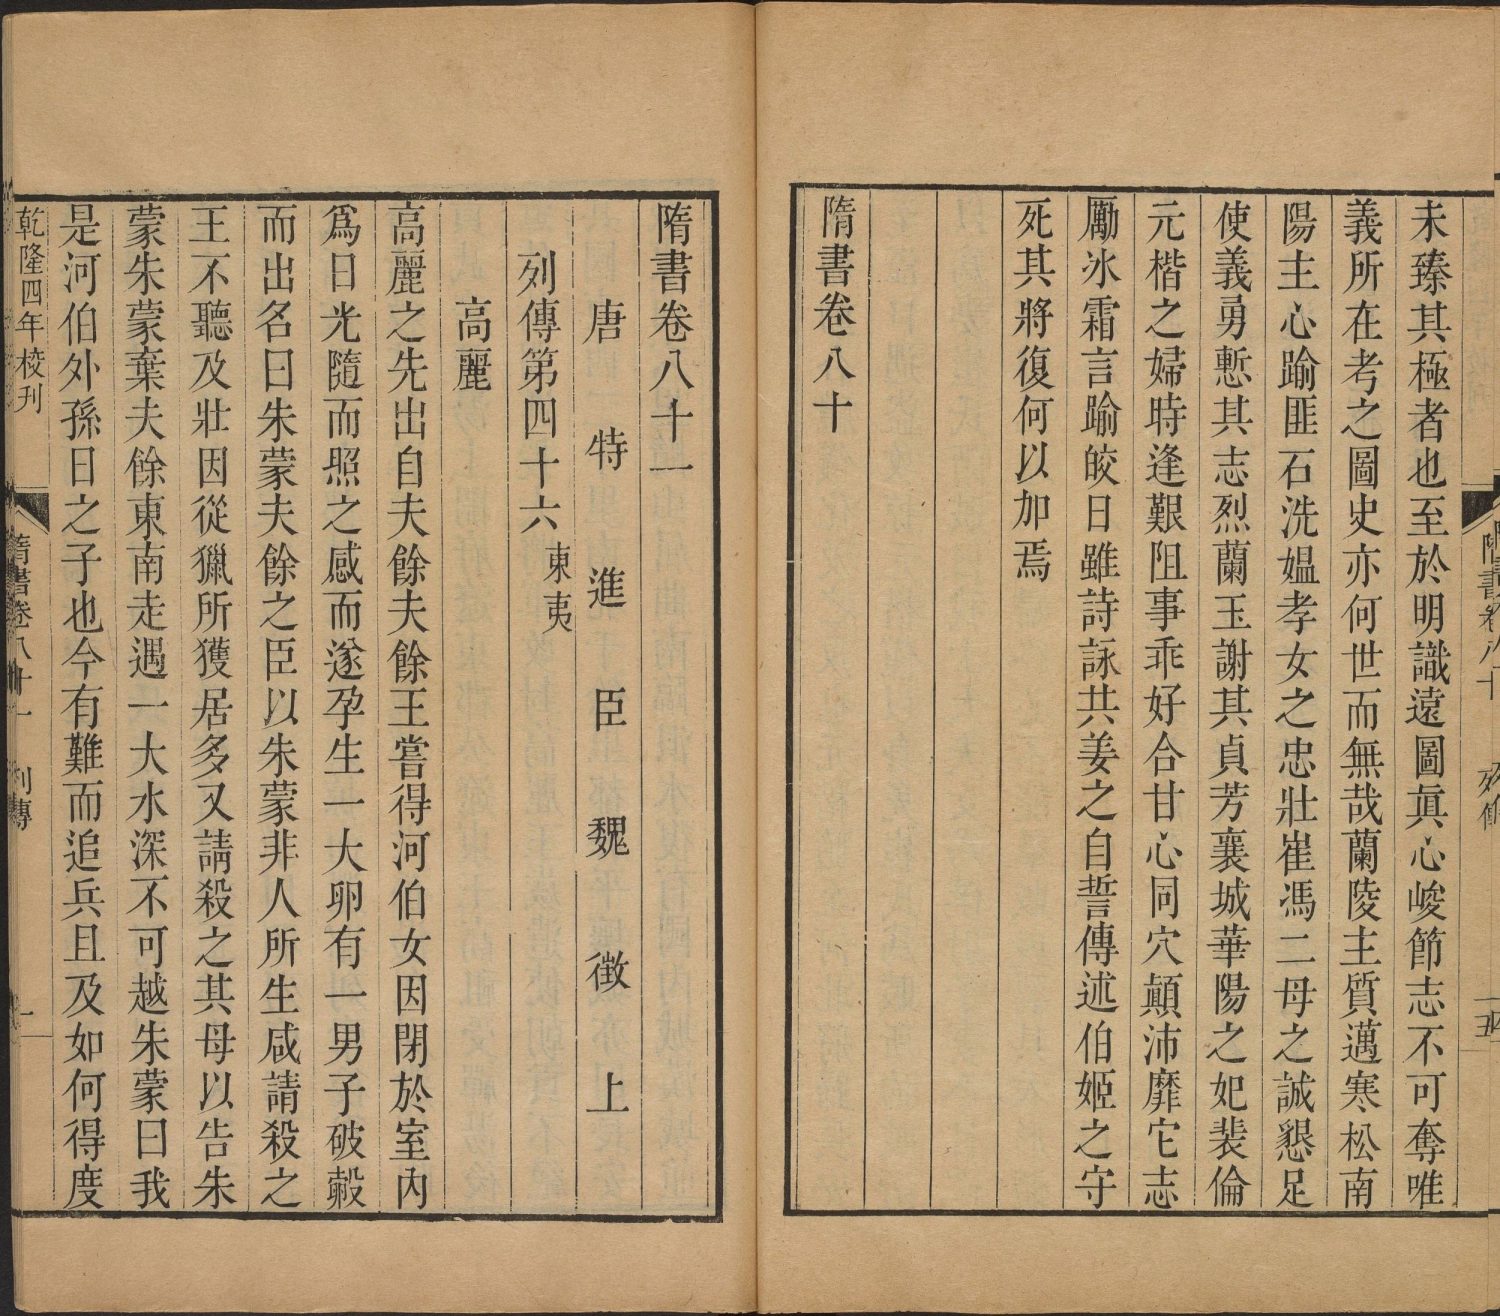 未臻其極者也至於明識遠圖眞心峻節志不可奪唯
義所在考之圖史亦何世而無哉蘭陵主質邁寒松南
陽主心踰匪石洗媼孝女之忠壯崔馮二母之誠懇足
使義勇慙其志烈蘭玉謝其貞芳襄城華陽之妃裴倫
元楷之婦時逢艱阻事乖好合甘心同穴顛沛靡它志
勵冰霜言踰皎日雖詩詠共姜之自誓傳述伯姬之守
死其將復何以加焉
隋書卷八十
隋書卷八十一
唐特進臣魏徵上
列傳第四十六東夷
高麗
高麗之先出自夫餘夫餘王嘗得河伯女因閉於室內
爲日光隨而照之感而遂孕生一大卵有一男子破殼
而出名曰朱蒙夫餘之臣以朱蒙非人所生咸請殺之
王不聽及壯因從獵所獲居多又請殺之其母以告朱
蒙朱蒙棄夫餘東南走遇一大水深不可越朱蒙曰我
是河伯外孫日之子也今有難而追兵且及如何得度
乾隆四年校刊
隋書卷八十一
列傳
一